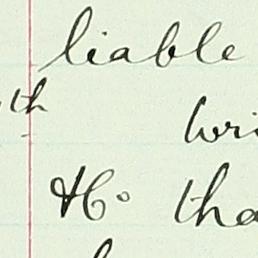 liable
th
wri
Ho tha